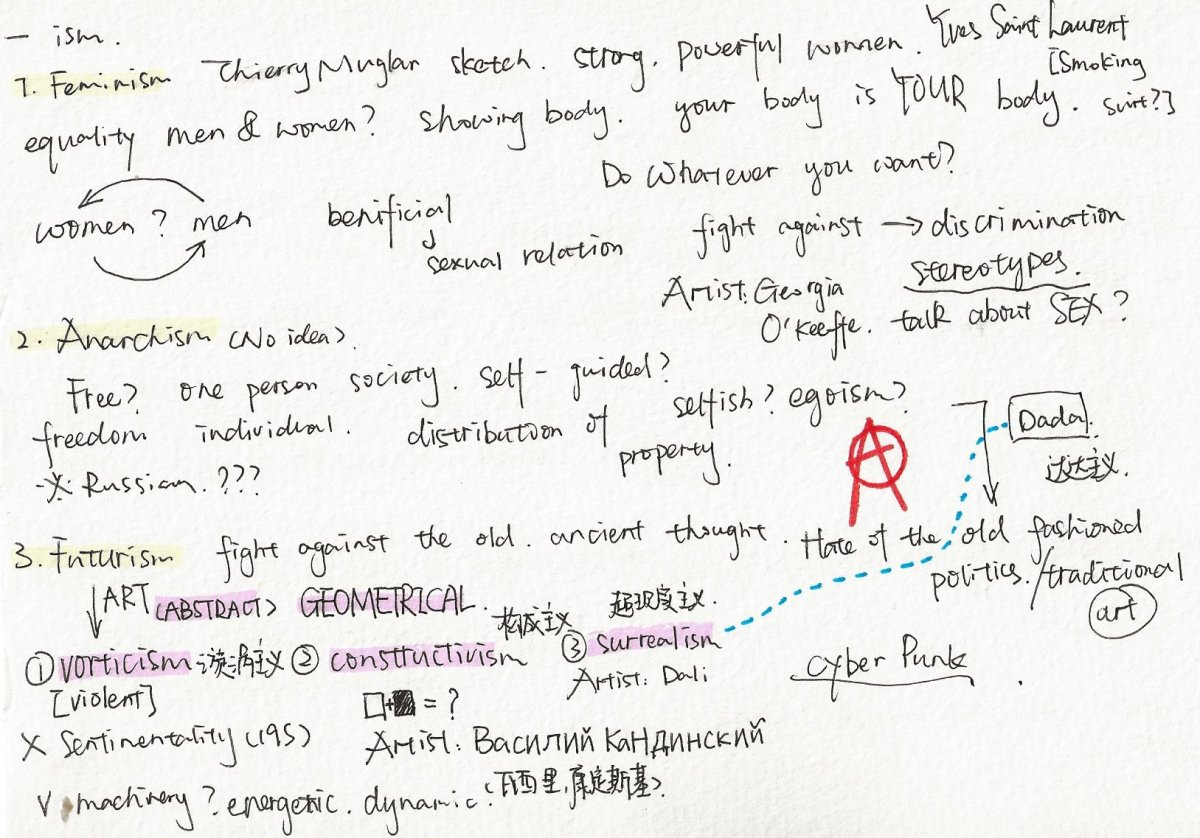 - ism.
1. Feminism Thierry Muglar sketch. strong. powerful women. Yves Saint Laurent
[Smoking
suirt?]
equality men & women? showing body. your body is YOUR body.
Do Whatever you want?
women ? men benificial
sexual relation
fight against → discrimination
stereotypes.
Artist: Georgia
O'Keeffe. talk about SEX ?
2. Anarchism (No idea).
Free? one person society. self - guided?
selfish? egoism?
freedom individual. distribution of
property.
Russian. ???
A
Dada.
达达主义.
3. Futurism fight against the old. ancient thought. Hate of the old fashioned
politics. /traditional
art
ART (ABSTRACT) GEOMETRICAL.
① vorticism 漩涡主义 ② constructivism 构成主义 ③ surrealism 超现实主义.
[violent] □+■ = ?
Artist: Dali
cyber Punk
X Sentimentality (19S) Artist: Василий Кандинский
(瓦西里,康定斯基).
V machinery ? energetic. dynamic.